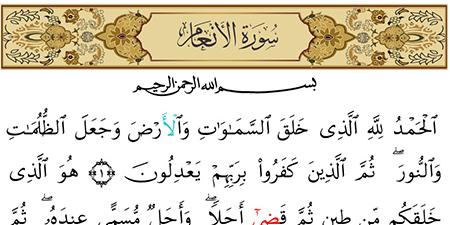 سُورَةُ الأَنْعَامِ
بِسْمِ اللهِ الرَّحْمٰنِ الرَّحِيمِ
ٱلْحَمْدُ لِلَّهِ ٱلَّذِى خَلَقَ ٱلسَّمَٰوَٰتِ وَٱلْأَرْضَ وَجَعَلَ ٱلظُّلُمَٰتِ
وَٱلنُّورَ ۖ ثُمَّ ٱلَّذِينَ كَفَرُوا۟ بِرَبِّهِمْ يَعْدِلُونَ ﴿١﴾ هُوَ ٱلَّذِى
خَلَقَكُم مِّن طِينٍ ثُمَّ قَضَىٰٓ أَجَلًا ۖ وَأَجَلٌ مُّسَمًّى عِندَهُۥ ۖ ثُمَّ